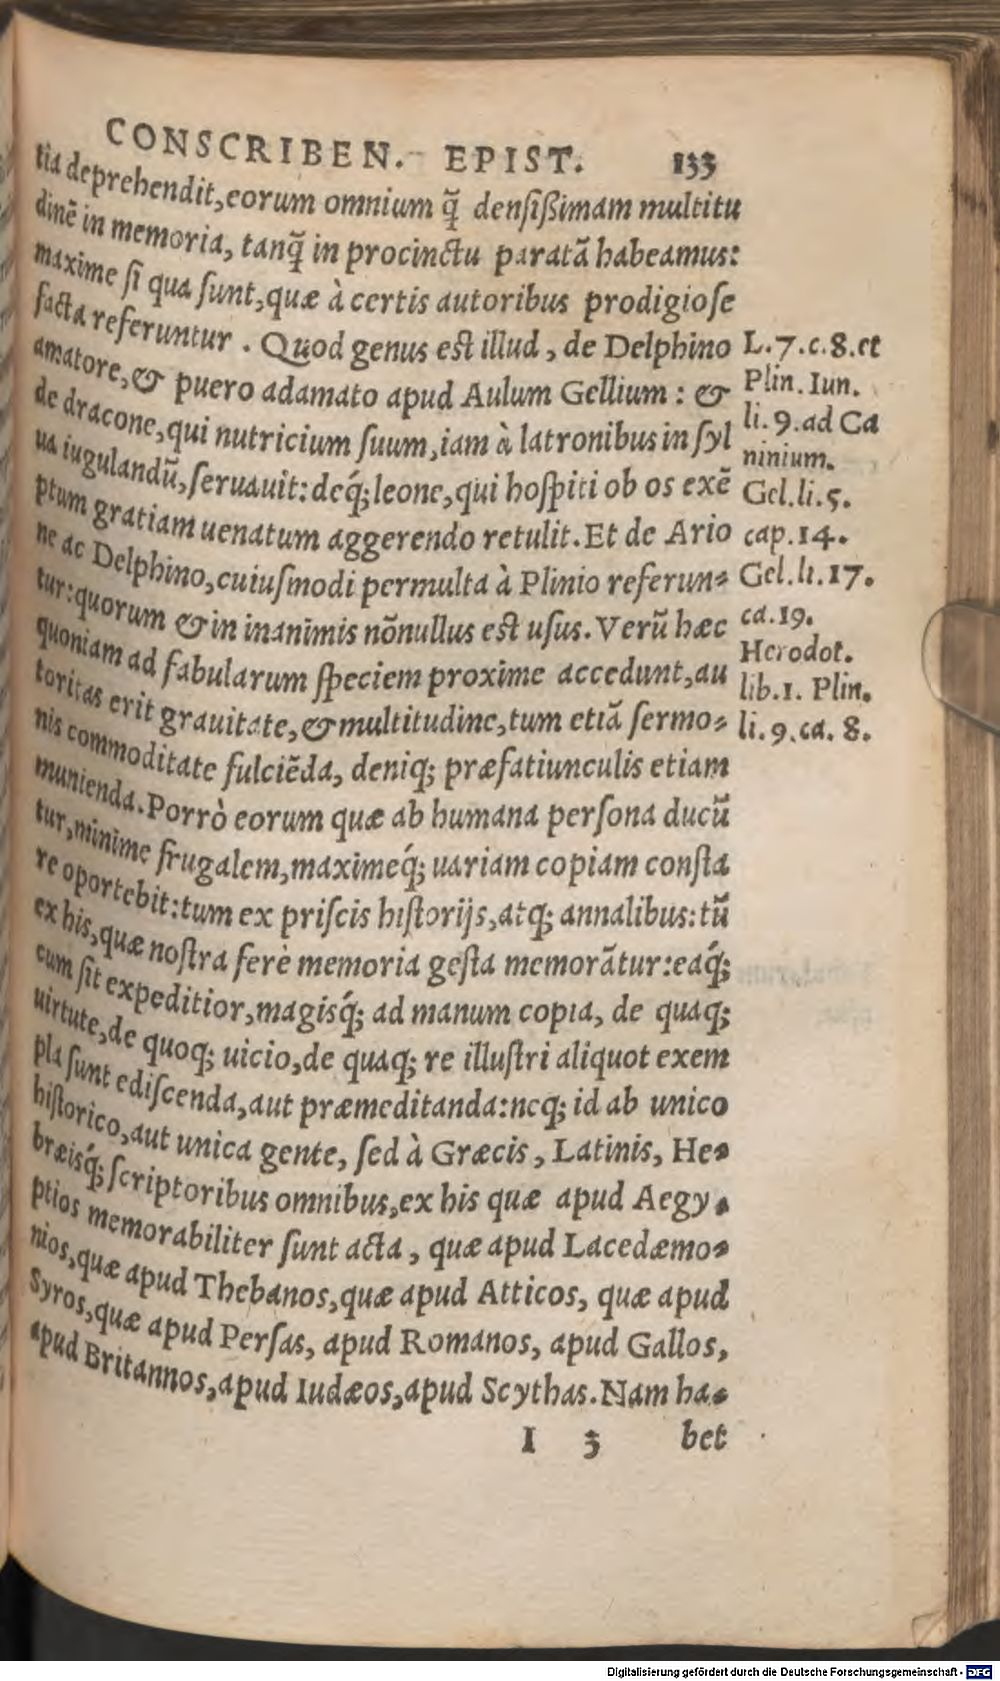 CONSCRIBEN. EPIST. 133
tia deprehendit, eorum omnium q̃ densißimam multitu
dinē in memoria, tanq̃ in procinctu paratã habeamus:
maxime si qua sunt, quæ à certis autoribus prodigiose
facta referuntur. Quod genus est illud, de Delphino
amatore, & puero adamato apud Aulum Gellium: &
de dracone, qui nutricium suum, iam à latronibus in syl
ua iugulandũ, seruauit: deq́; leone, qui hospiti ob os exē
ptum gratiam uenatum aggerendo retulit. Et de Ario
ne ac Delphino, cuiusmodi permulta à Plinio referun⸗
tur: quorum & in inanimis nõnullus est usus. Verũ hæc
quoniam ad fabularum speciem proxime accedunt, au
toritas erit grauitate, & multitudine, tum etiã sermo⸗
nis commoditate fulciēda, deniq; præfatiunculis etiam
munienda. Porrò eorum quæ ab humana persona ducũ
tur, minime frugalem, maximeq́; uariam copiam consta
re oportebit: tum ex priscis historijs, atq; annalibus: tũ
ex his, quæ nostra ferè memoria gesta memorãtur: eaq́;
cum sit expeditior, magisq́; ad manum copia, de quaq;
uirtute, de quoq; uicio, de quaq; re illustri aliquot exem
pla sunt ediscenda, aut præmeditanda: neq; id ab unico
historico, aut unica gente, sed à Græcis, Latinis, He⸗
bræisq́; scriptoribus omnibus, ex his quæ apud Aegy⸗
ptios memorabiliter sunt acta, quæ apud Lacedæmo⸗
nios, quæ apud Thebanos, quæ apud Atticos, quæ apud
Syros, quæ apud Persas, apud Romanos, apud Gallos,
apud Britannos, apud Iudæos, apud Scythas. Nam ha⸗
I 3 bet
L. 7. c. 8. et
Plin. Iun.
li. 9. ad Ca
ninium.
Gel. li. 5.
cap. 14.
Gel. li. 17.
ca. 19.
Herodot.
lib. 1. Plin.
li. 9. ca. 8.
Digitalisierung gefördert durch die Deutsche Forschungsgemeinschaft - DFG